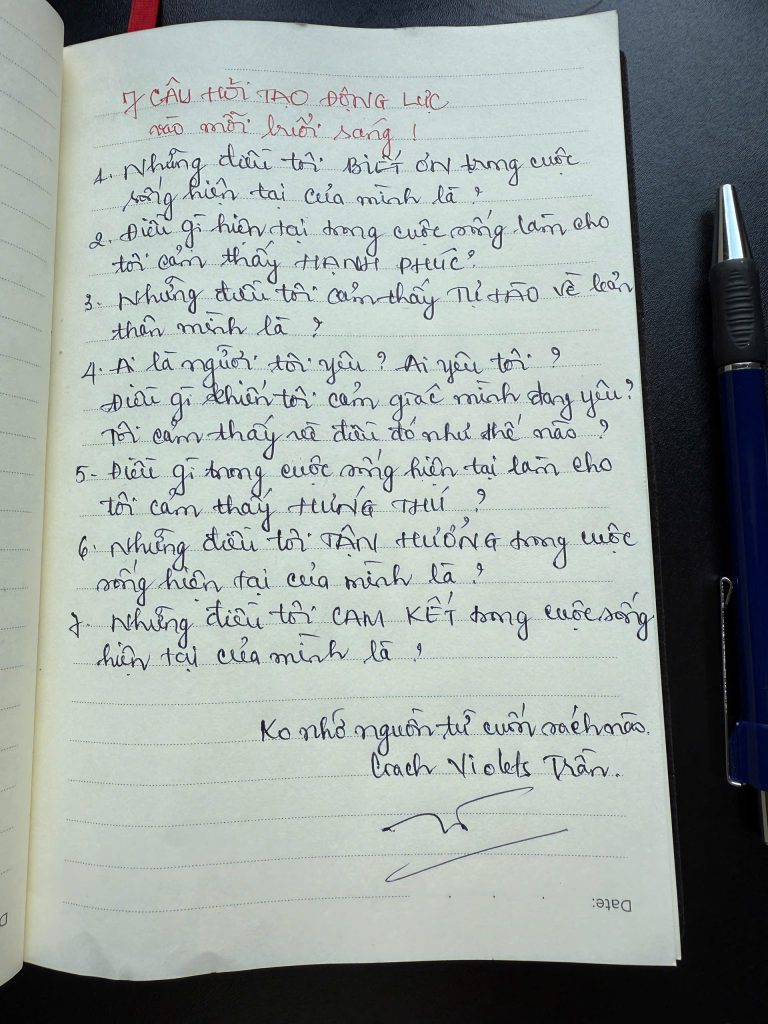 7 CÂU HỎI TẠO ĐỘNG LỰC
vào mỗi buổi sáng !
1. Những điều tôi BIẾT ƠN trong cuộc
sống hiện tại của mình là ?
2. Điều gì hiện tại trong cuộc sống làm cho
tôi cảm thấy HẠNH PHÚC?
3. Những điều tôi cảm thấy TỰ HÀO về bản
thân mình là ?
4. Ai là người tôi yêu ? Ai yêu tôi ?
Điều gì khiến tôi cảm giác mình đang yêu?
Tôi cảm thấy về điều đó như thế nào ?
5- Điều gì trong cuộc sống hiện tại làm cho
tôi cảm thấy HỨNG THÚ ?
6. Những điều tôi TẬN HƯỞNG trong cuộc
sống hiện tại của mình là ?
7. Những điều tôi CAM KẾT trong cuộc sống
hiện tại của mình là ?
Ko nhớ nguồn từ cuốn sách nào.
Coach Violets Trần.
Date: